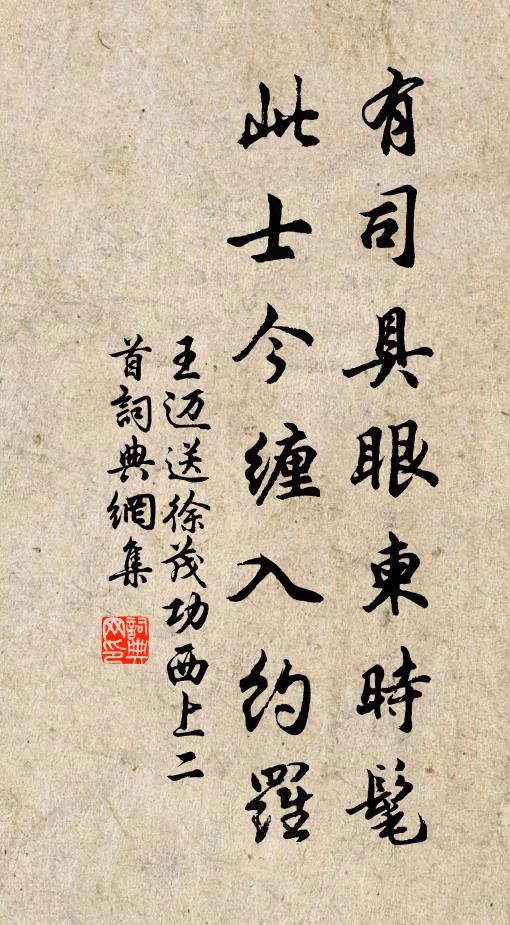 有司具眼東時髦
此士今纏入約羅
王迈送徐茂功西上二
首詞典網集
詞典网印